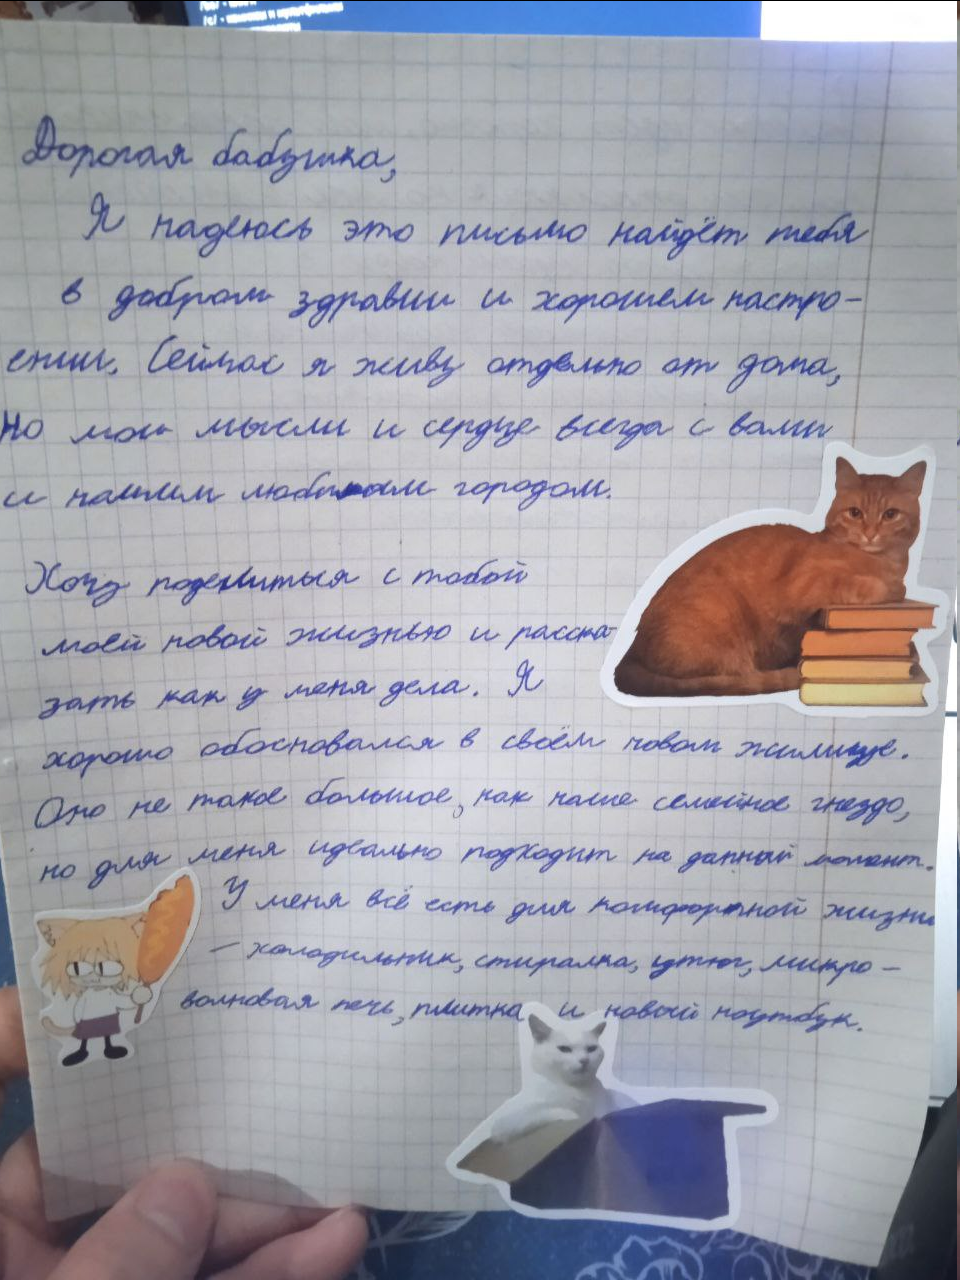 /c/ - 
Дорогая бабушка,
Я надеюсь это письмо найдёт тебя
в добром здравии и хорошем настро-
ении. Сейчас я живу отдельно от дома,
но мои мысли и сердце всегда с вами
и нашим любимым городом.
Хочу поделиться с тобой
моей новой жизнью и расска-
зать как у меня дела. Я
хорошо обосновался в своём новом жилище.
Оно не такое большое, как наше семейное гнездо,
но для меня идеально подходит на данный момент.
У меня всё есть для комфортной жизни
– холодильник, стиралка, утюг, микро-
волновая печь, плитка и новый ноутбук.